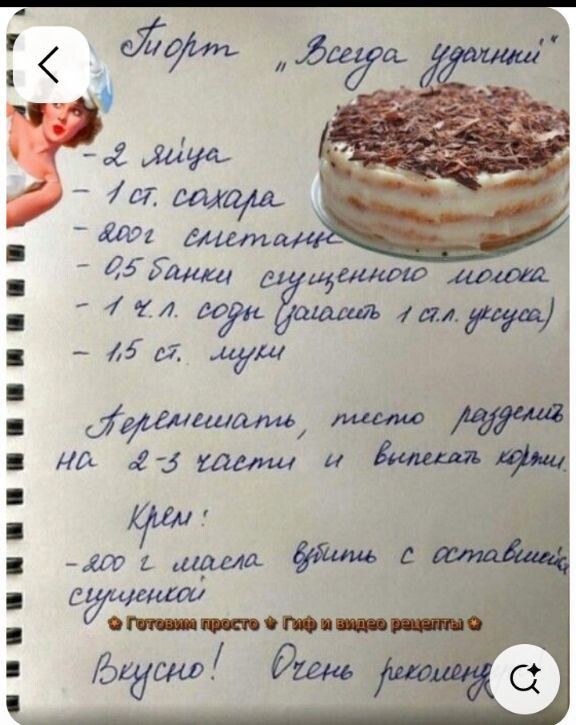 Торт „Всегда удачный"
- 2 яйца
- 1 ст. сахара
- 200г сметаны
- 0,5 банки сгущенного молока
- 1 ч.л. соды (загасить 1 ст.л. уксуса)
- 1,5 ст. муки
Перемешать, тесто разделить
на 2-3 части и выпекать коржи.
Крем:
- 200 г масла взбить с оставшейся
сгущенкой
Готовим просто Гиф и видео рецепты
Вкусно! Очень